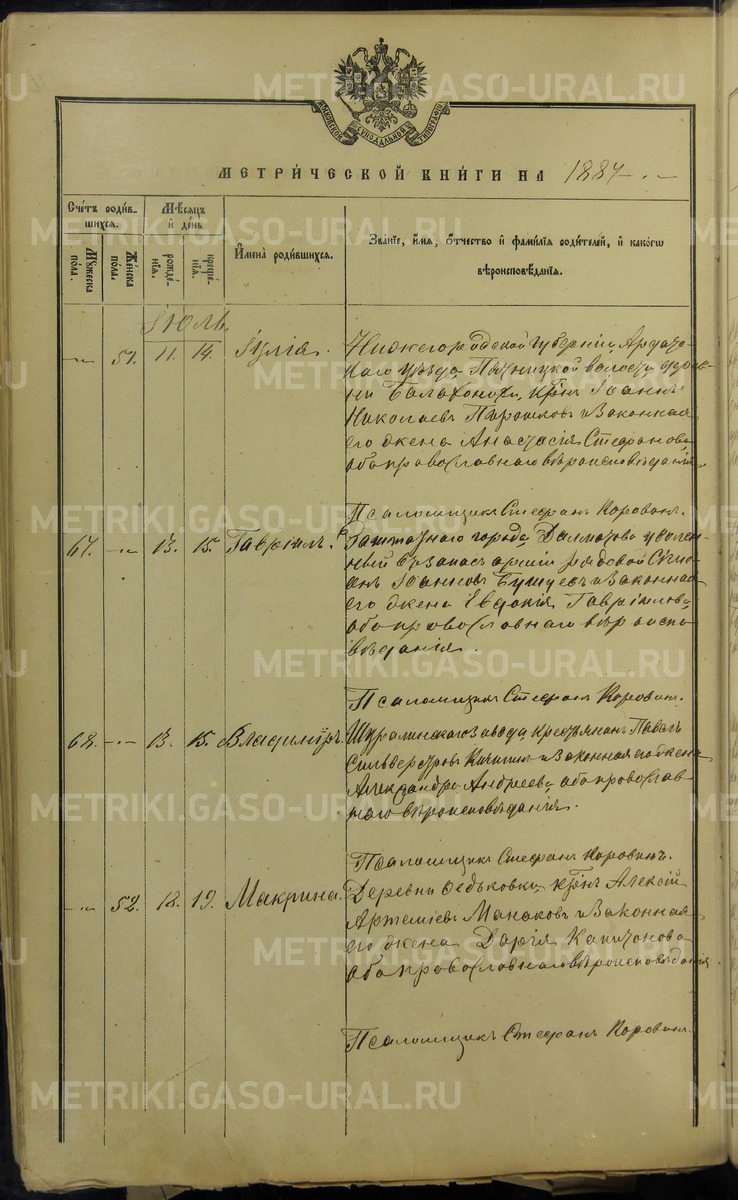 МОСКОВСКОЙ СѴНОДАЛЬНОЙ ТИПОГРАФІИ
МЕТРИ́ЧЕСКОЙ КНИ́ГИ НА 1887
Сче́тъ роди́в-
шихся.
Му́жеска
по́ла.
Же́нска
по́ла.
Мѣ́сяцъ
и҆ де́нь
рожде́-
нїя.
креще́-
нїя.
И҆мена̀ роди́вшихся.
Зва́нїе, и҆́мѧ, ѻ҆́тчество и҆ фами́лїѧ роди́телей, и҆ како́гѡ
вѣроисповѣ́данїѧ.
Іюль.
51. 11. 14. Іулія.
Нижегородской губерніи, Ардатов-
скаго уѣзда, волости дерев-
ни Балахонихи, крнъ Іоаннъ
Николаевъ и законная
его жена Анастасія Стефанова,
оба православнаго вѣроисповѣданія.
Псаломщикъ Стефанъ Коровинъ.
67. 13. 15. Гавріилъ.
Заштатнаго города Далматова уволен-
ный въ запасъ арміи рядовой
Іоанновъ и законная
его жена Евдокія Гавріилова,
оба православнаго вѣроиспо-
вѣданія.
Псаломщикъ Стефанъ Коровинъ.
68. 13. 15. Владиміръ.
Шуралинскаго завода крестьянинъ Павелъ
Сильверстровъ и законная его жена
Александра Андреева, оба православ-
наго вѣроисповѣданія.
Псаломщикъ Стефанъ Коровинъ.
52. 18. 19. Макрина.
Деревни Федьковки, крнъ Алексій
Артеміевъ Манаковъ и законная
его жена Дарія Капитонова
оба православнаго вѣроисповѣданія.
Псаломщикъ Стефанъ Коровинъ.
METRIKI.GASO-URAL.RU